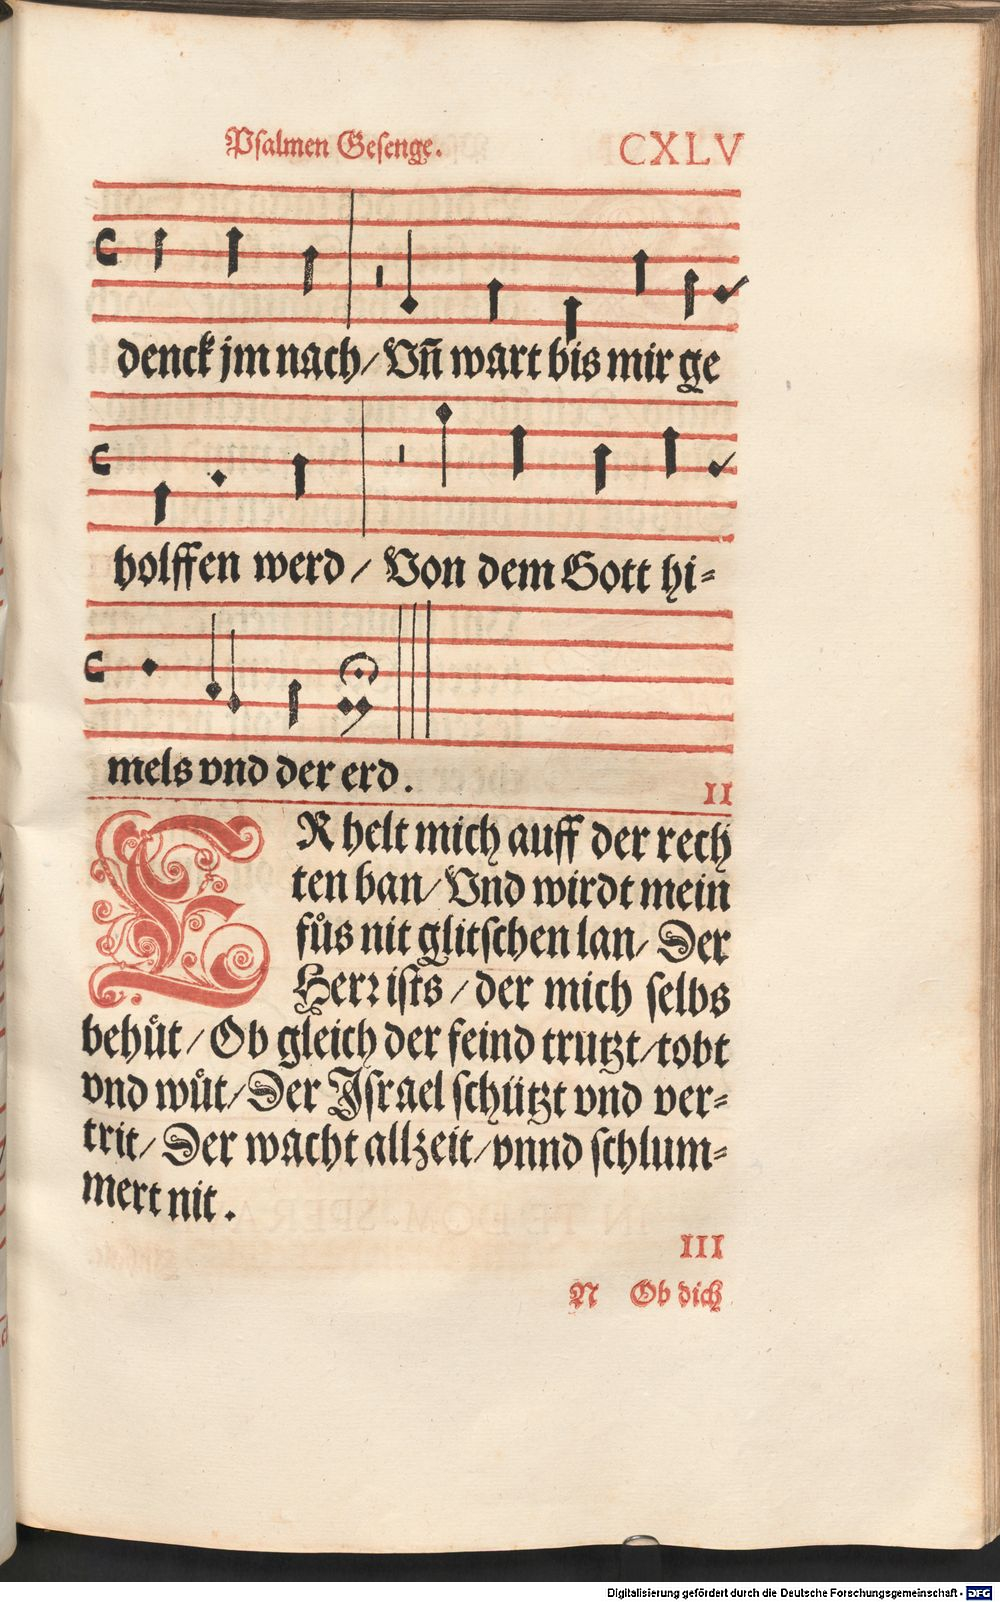 Psalmen Gesenge. CXLV
denck jm nach/ Vñ wart bis mir ge
holffen werd/ Von dem Gott hi⸗
mels vnd der erd.
II
ER helt mich auff der rech
ten ban/ Vnd wirdt mein
fůs nit glitschen lan/ Der
Herr ists/ der mich selbs
behůt/ Ob gleich der feind trutzt/ tobt
vnd wůt/ Der Israel schützt vnd ver⸗
trit/ Der wacht allzeit/ vnnd schlum⸗
mert nit.
III
N Ob dich
Digitalisierung gefördert durch die Deutsche Forschungsgemeinschaft - DFG